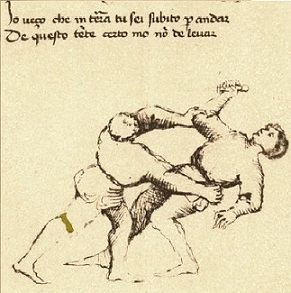 Io veço che in terra tu sei subito p andar
De questo tente certo mo nō de levar